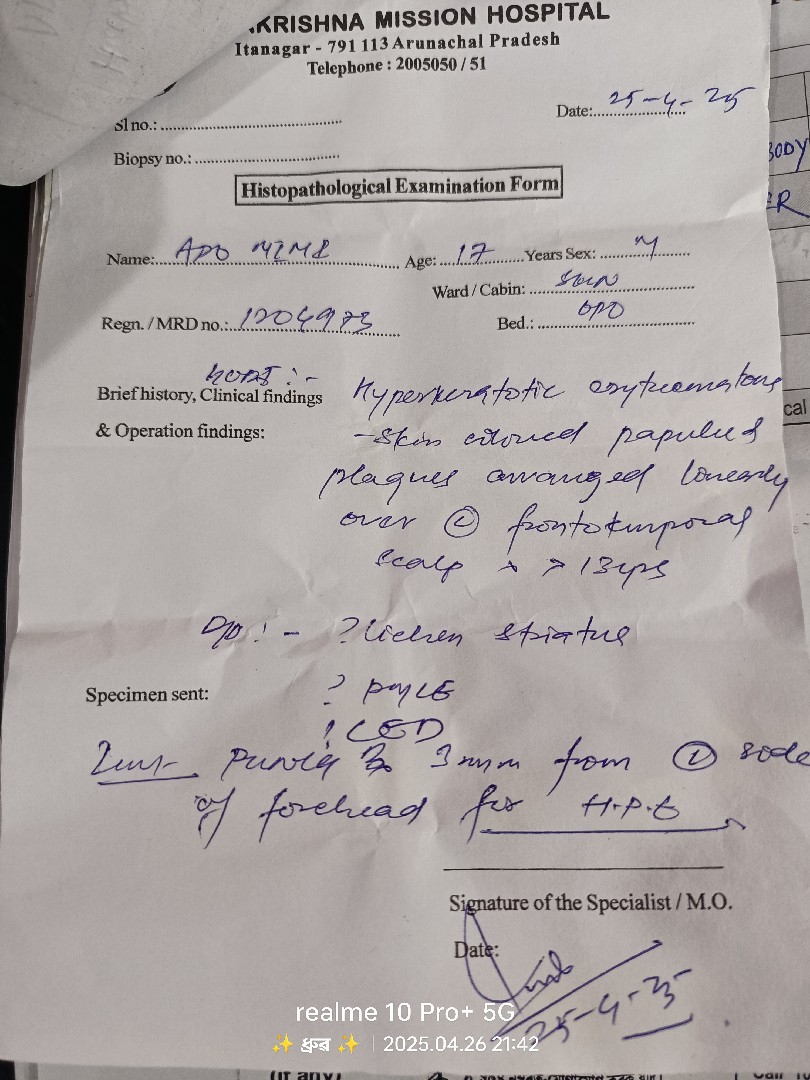 KRISHNA MISSION HOSPITAL
Itanagar - 791 113 Arunachal Pradesh
Telephone : 2005050 / 51
Date: 25-4-25
Sl no.:
Biopsy no.:
Histopathological Examination Form
Name: Age: 17 Years Sex: M
Ward / Cabin: Skin
Regn. / MRD no.: 1204973 Bed.: OPD
HOPI :-
Brief history, Clinical findings Hyperkeratotic erythematous
& Operation findings: - Skin coloured papules &
plaques arranged linearly
over Ⓛ frontotemporal
scalp x > 13yrs
D/D :- ? Lichen striatus
Specimen sent: ?
?
punch 3mm from Ⓛ side
of forehead for H.P.E
Signature of the Specialist / M.O.
Date:
25-4-25
BODY
ER
cal
realme 10 Pro+ 5G
✨ ধ্রুব ✨ | 2025.04.26 21:42
(if any)